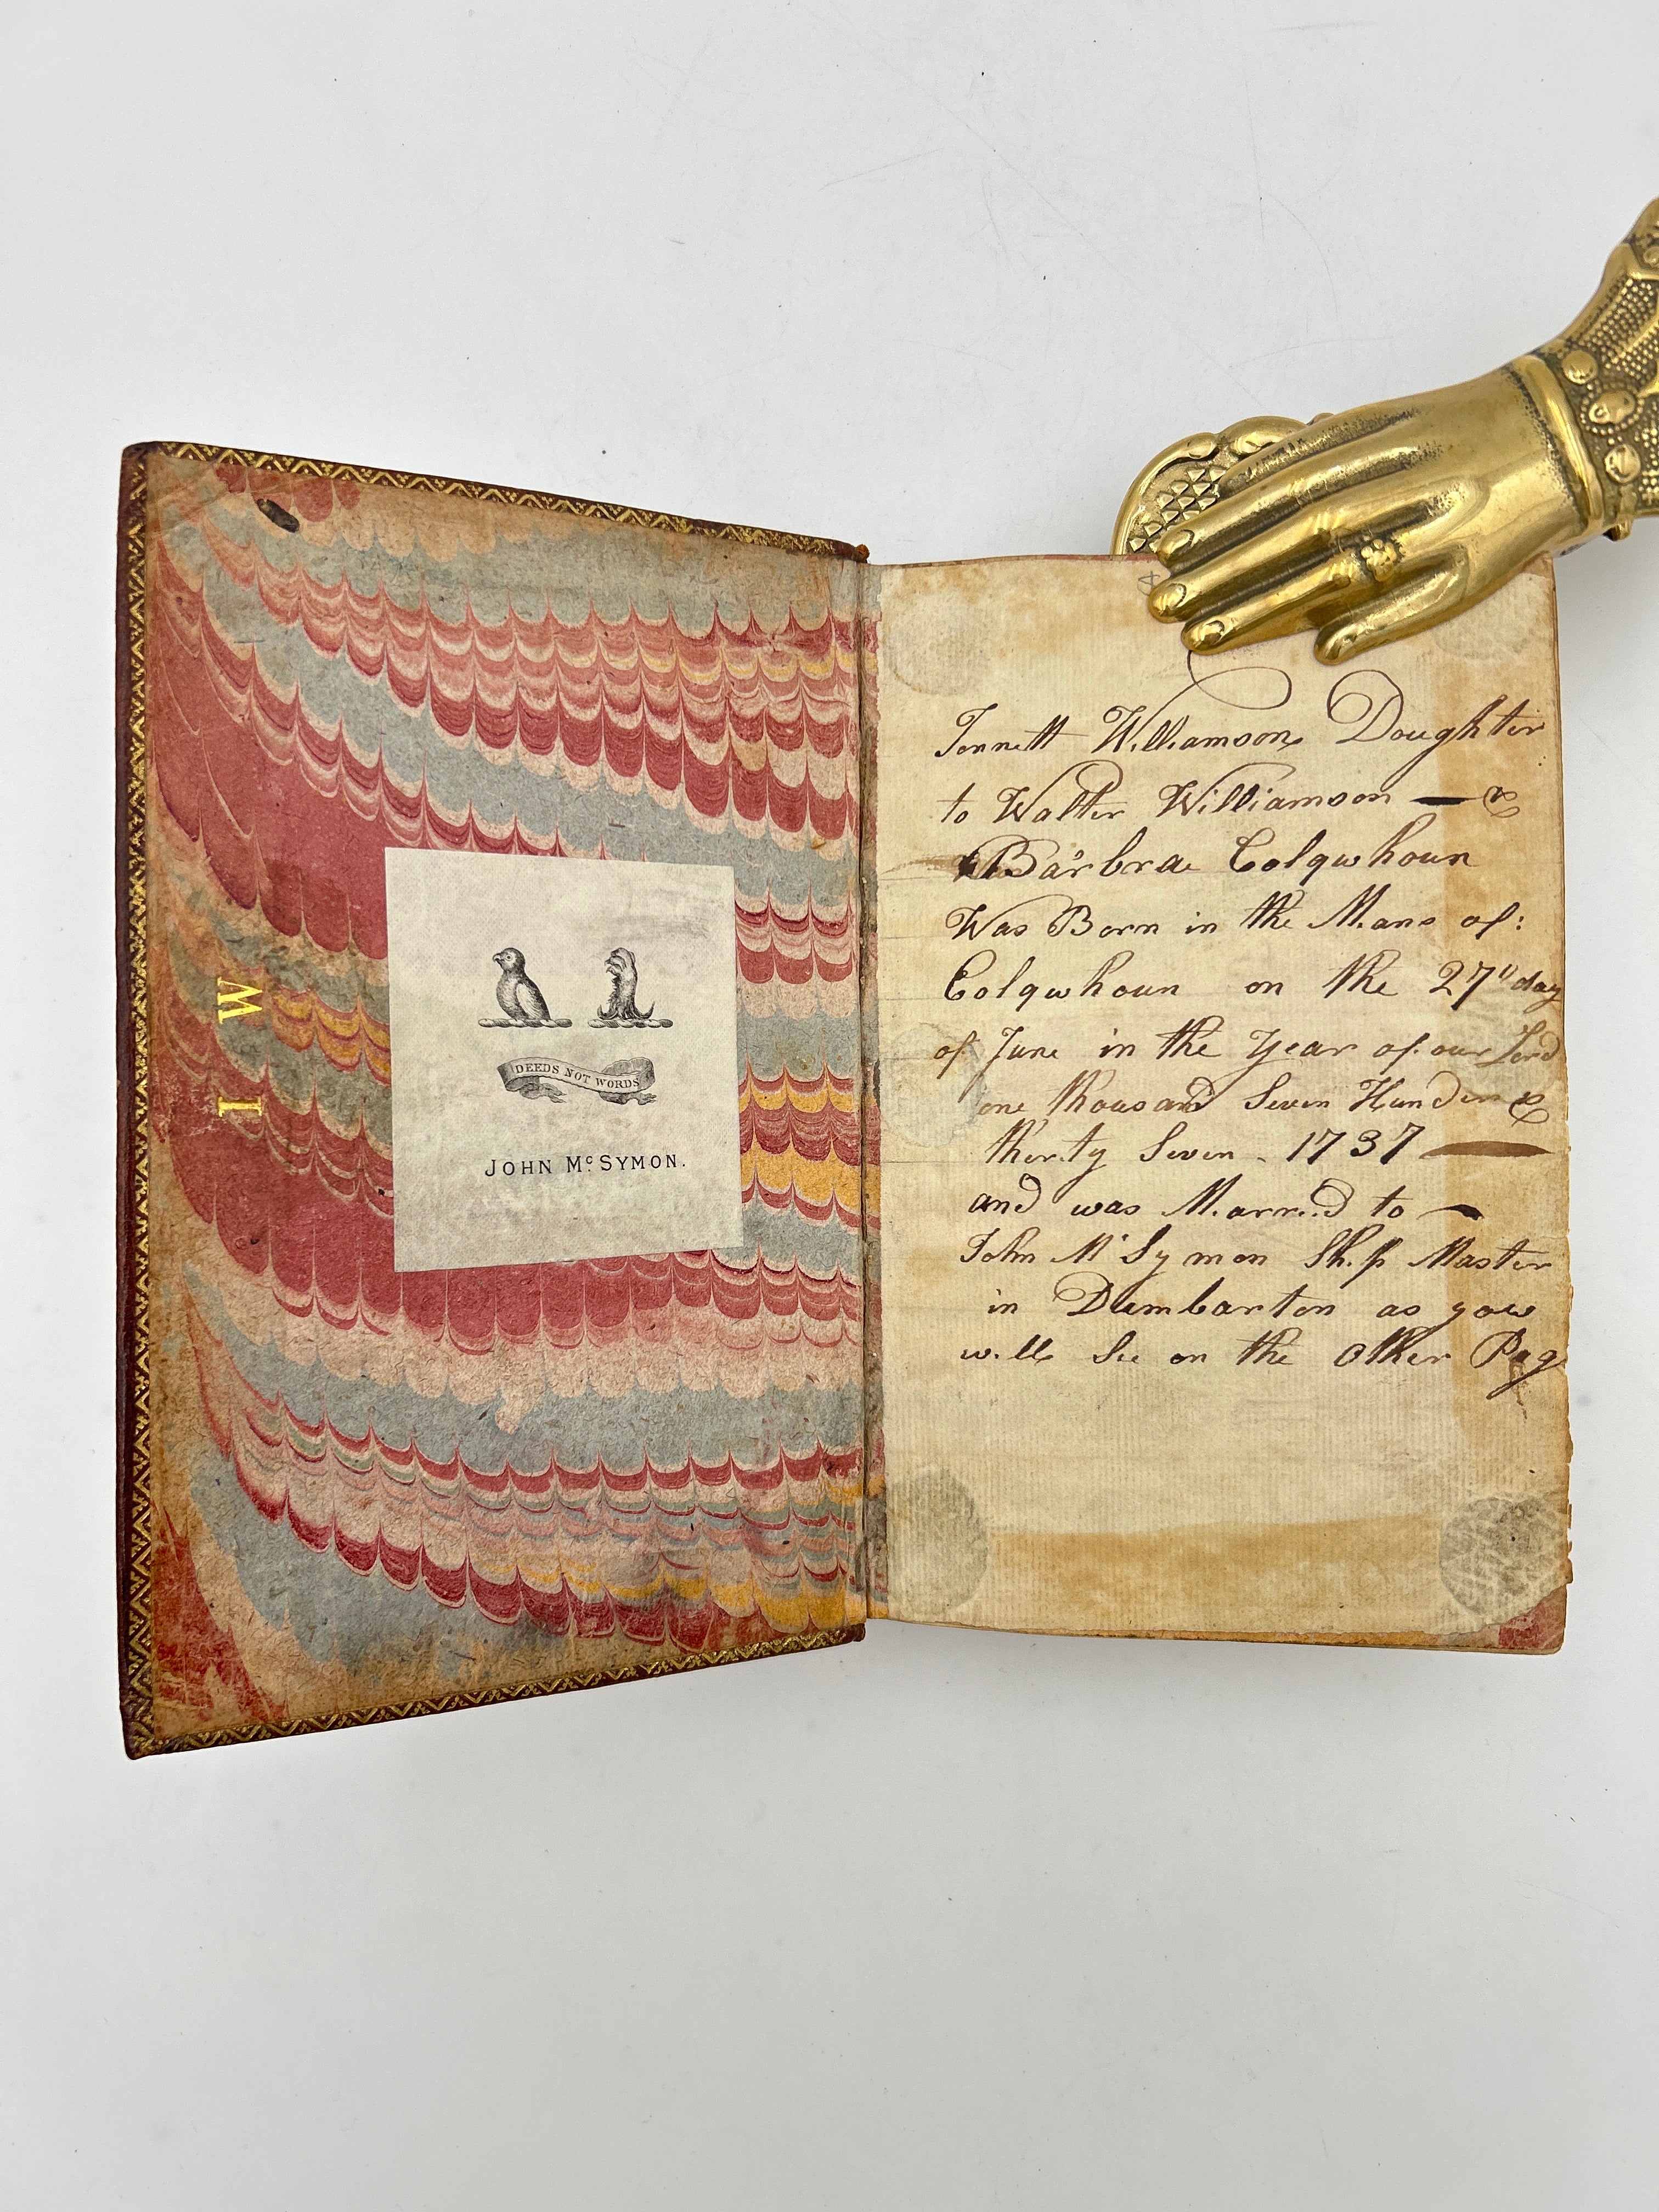 I W
DEEDS NOT WORDS
JOHN McSYMON.
Jonnett Williamson Doughter
to Walter Williamson — &
Barbra Colqwhoun
Was Born in the Mans of:
Colqwhoun on the 27" day
of June in the Year of our Lord
one thousand Seven Hunder &
thirty Seven - 1737 —
and was Married to —
John Mc Symon Ship Master
in Dumbarton as yow
will See on the Other Pag